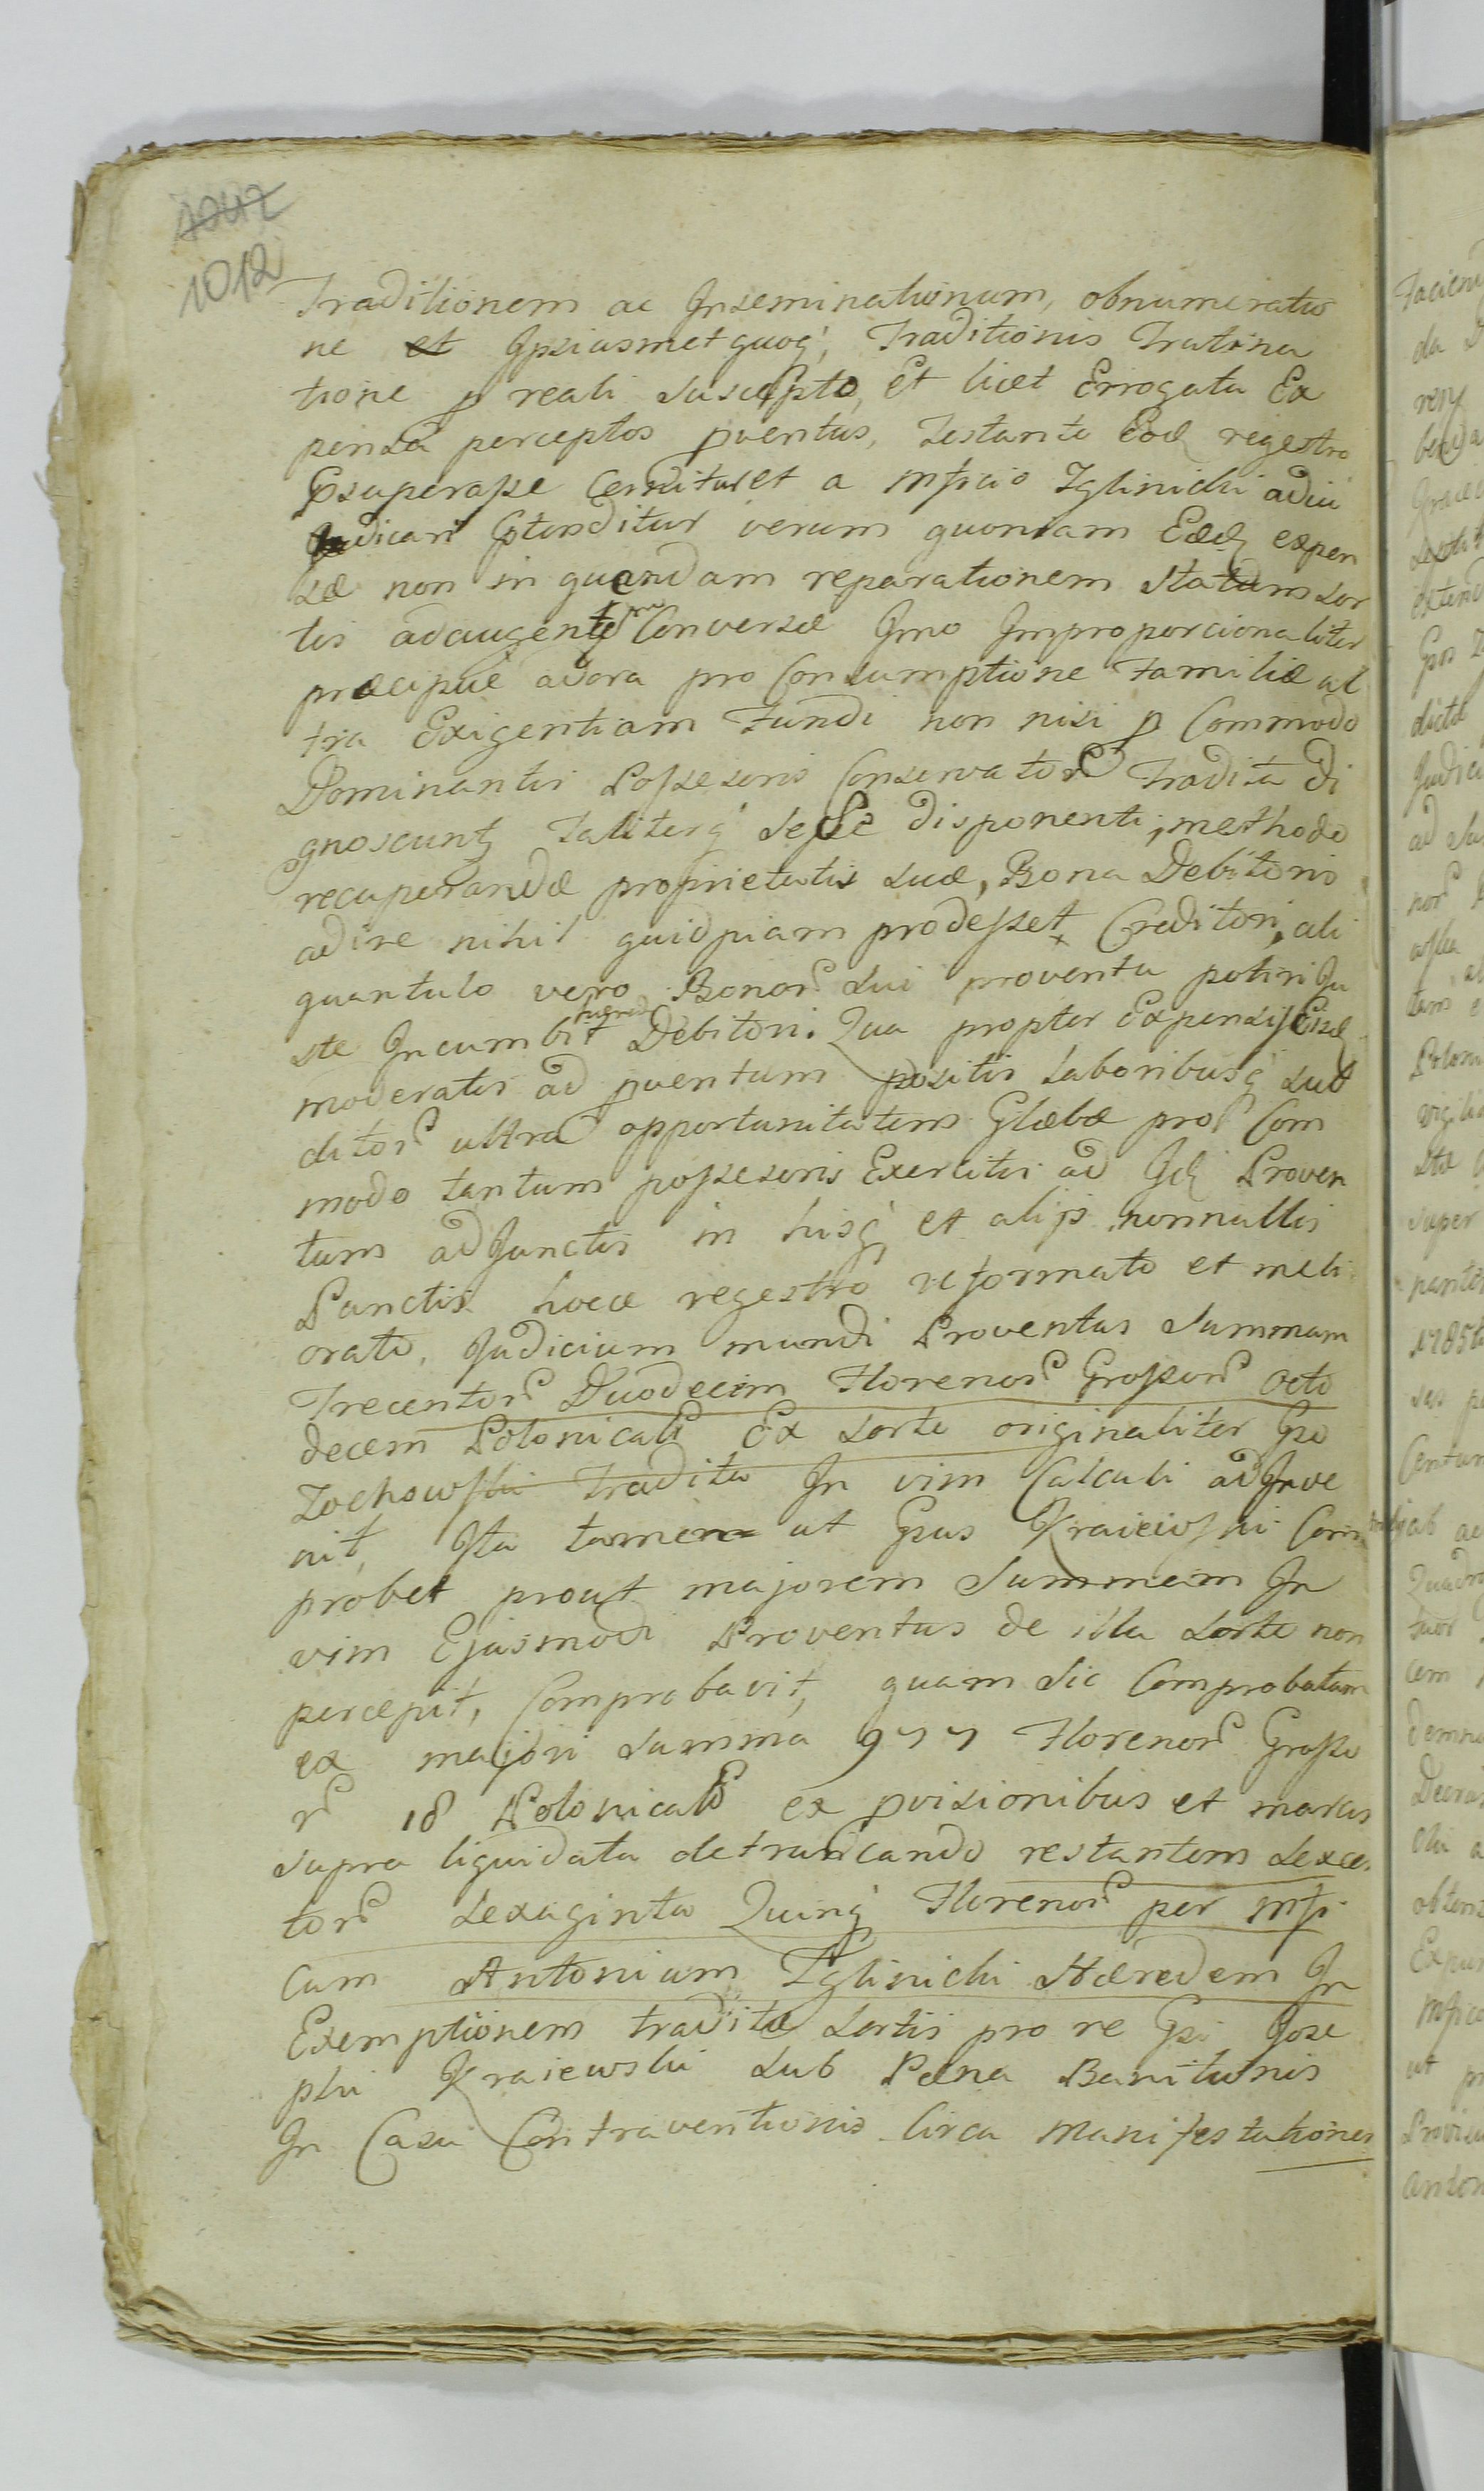 1012
Traditionem ac Inseminationum, obnumeratio
ne et Ipsiusmet quoq, Traditionis Trutina
tione p reali suscepto, Et licet Errogata Ex
pensa perceptos pventus, testante Eod regestro
Exuperasse Cernitur et a Mfico Iglinicki adiu
dicari Ptenditur verum quoniam Eaed expen
sæ non in quandam reparationem statum sor
tis adaugentem Conversæ Imo Improporcionaliter
præcipue adora pro Consumptione Familiæ ul
tra Exigentiam Fundi non nisi p Commodo
Dominantis Possesoris Conservator Tradita di
gnoscunt taliterq sese disponenti, methodo
recuperandæ proprietatis suæ, Bona Debitoris
adire nihil quidpiam prodesset Creditori, ali
quantulo vero Bonor sui proventu potiri Ju
ste Incumbit hæredi Debitori. Qua propter Expensis Eisd
moderatis ad pventum positis laboribusq sub
ditor ultra opportunitatem Glæbæ pro Com
modo tantum possesoris Exercitis ad Id Proven
tum adjunctis in hisq et alijs nonnullis
Punctis hocce regestro reformato et meli
orato, Judicium mundi Proventus Summam
Trecentor Duodecim Florenor Grossor octo
decem Polonical Ex sorte originaliter Gso
Zochowski tradita In vim Calculi adInve
nit, Ita tamen ut Gsus Kraiewski Com
probet prout majorem Summam In
vim Ejusmodi Proventus de illa sorte non
percepit, Comprobavit, quam sic Comprobatam
ex majori summa 977 Florenor Grosso
r 18 Polonical ex pvisionibus et marcis
supra liquidata detruncando restantem sexce
tor sexaginta Quinq Florenor per Mfi
cum Antonium Iglinicki Hæredem In
Exemptionem traditæ sortis pro re Gsi Jose
phi Kraiewski sub Pæna Banitionis
In Casu Contraventionis Circa Manifestationes